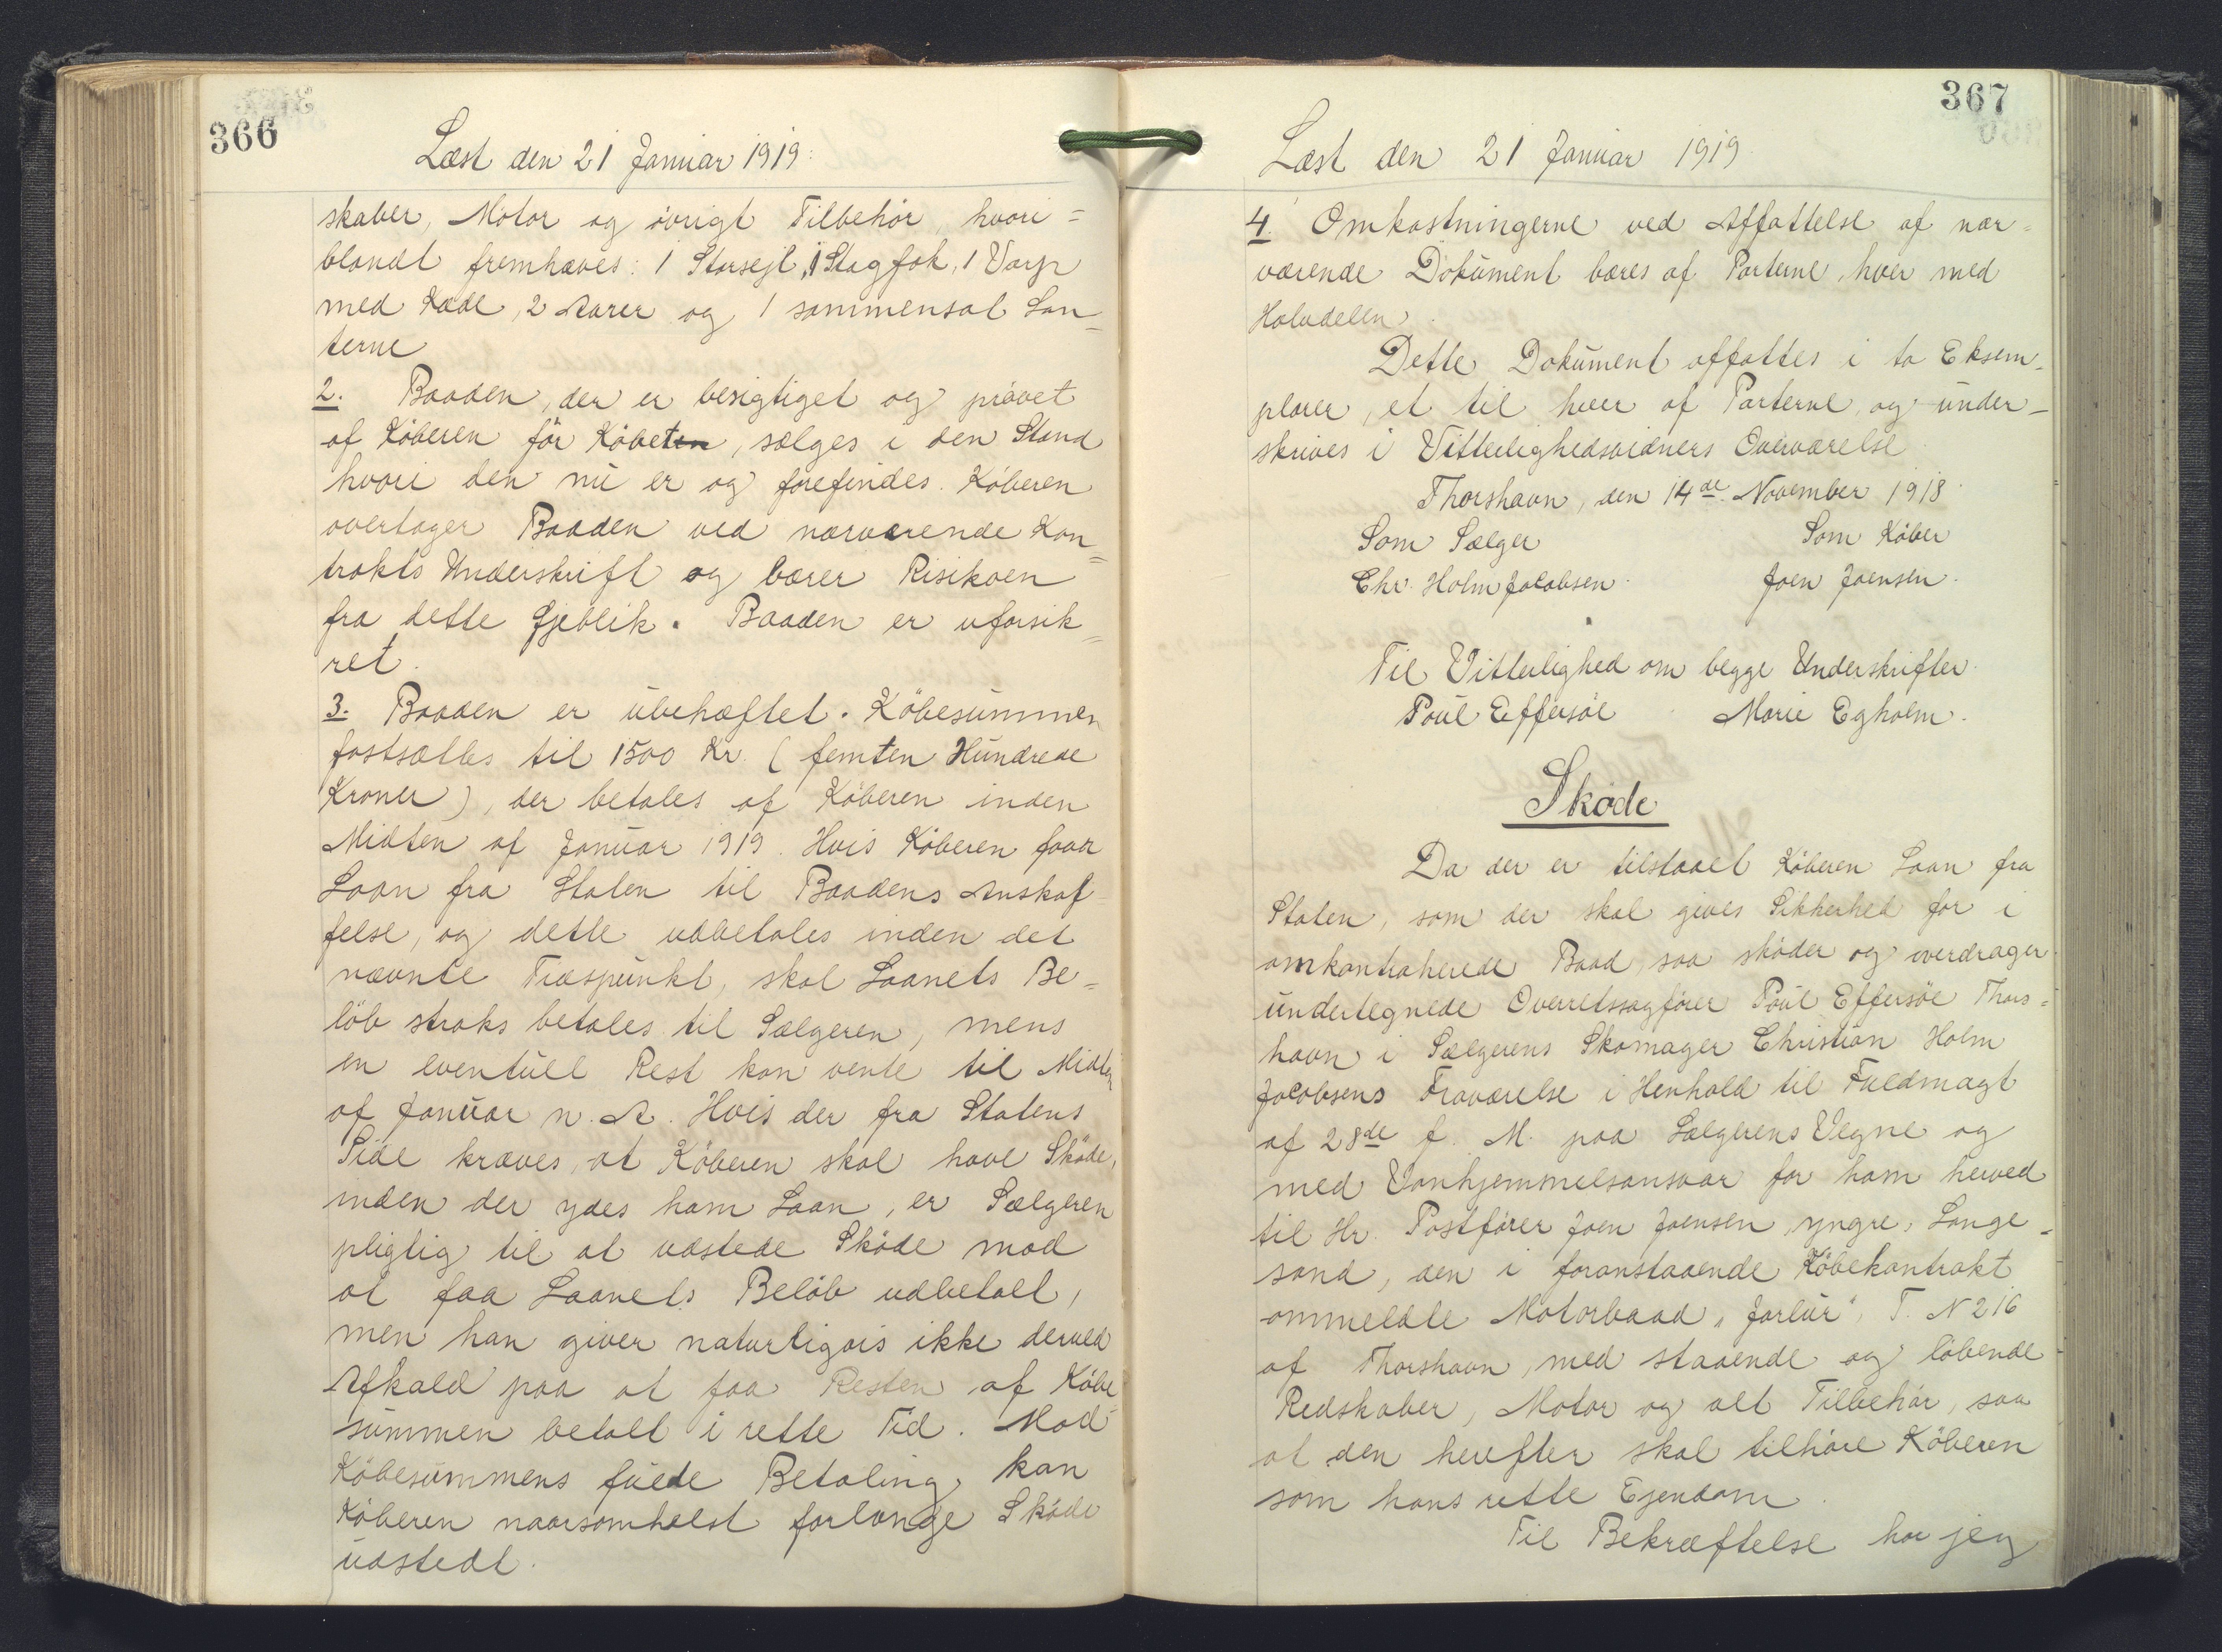 366
Læst den 21 Januar 1919.
skaber, Motor og övrigt Tilbehör, hvori=
blandt fremhæves: 1 Storsejl, 1 Stagfok, 1 Varp
med Kæde, 2 Aarer og 1 sammensat Lan=
terne
2. Baaden, der er besigtiget og prövet
af Köberen för Köbet, sælges i den Stand
hvori den nu er og forefindes. Köberen
overtager Baaden ved nærværende Kon=
trakts Underskrift og bærer Risikoen
fra dette Øjeblik. Baaden er uforsik=
ret.
3. Baaden er ubehæftet. Köbesummen
fastsættes til 1500 Kr. (femten Hundrede
Kroner), der betales af Köberen inden
Midten af Januar 1919. Hvis Köberen faar
Laan fra Staten til Baadens Anskaf
felse, og dette udbetales inden det
nævnte Tidspunkt, skal Laanets Be=
löb straks betales til Sælgeren, mens
en eventuel Rest kan vente til Midten
af Januar n. A. Hvis der fra Statens
Side kræves, at Köberen skal have Sköde,
inden der ydes ham Laan, er Sælgeren
pligtig til at udstede Sköde mod
at faa Laanets Belöb udbetalt,
men han giver naturligvis ikke derved
Afkald paa at faa Resten af Köbe
summen betalt i rette Tid. Mod
Köbesummens fulde Betaling kan
Köberen naarsomhelst forlange Sköde
udstedt.
367
Læst den 21 Januar 1919
4. Omkostningerne ved Affattelse af nær=
værende Dokument bæres af Parterne, hver med
Halvdelen.
Dette Dokument affattes i to Eksem-
plarer, et til hver af Parterne, og under-
skrives i Vitterlighedsvidners Overværelse
Thorshavn, den 14de November 1918.
Som Sælger Som Köber
Chr. Holm Jacobsen. Joen Joensen.
Til Vitterlighed om begge Underskrifter.
Poul Effersöe Marie Egholm.
Sköde
Da der er tilstaaet Köberen Laan fra
Staten, som der skal gives Sikkerhed for i
omkontraherede Baad, saa sköder og overdrager
undertegnede Overretssagförer Poul Effersöe Thors=
havn i Sælgerens Skomager Christian Holm
Jacobsens Fraværelse i Henhold til Fuldmagt
af 28de f. M. paa Sælgerens Vegne og
med Vanhjemmelsansvar for ham herved
til Hr. Postförer Joen Joensen, yngre, Lange=
sand, den i foranstaaende Köbekontrakt
ommeldte Motorbaad „Jarlur", T. N 216
af Thorshavn, med staaende og löbende
Redskaber, Motor og alt Tilbehör, saa
at den herefter skal tilhöre Köberen
som hans rette Ejendom.
Til Bekræftelse har jeg